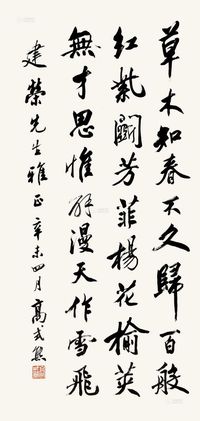 草木知春不久歸百般
紅紫鬭芳菲楊花榆莢
無才思惟解漫天作雪飛
建榮先生雅正辛未四月高式熊